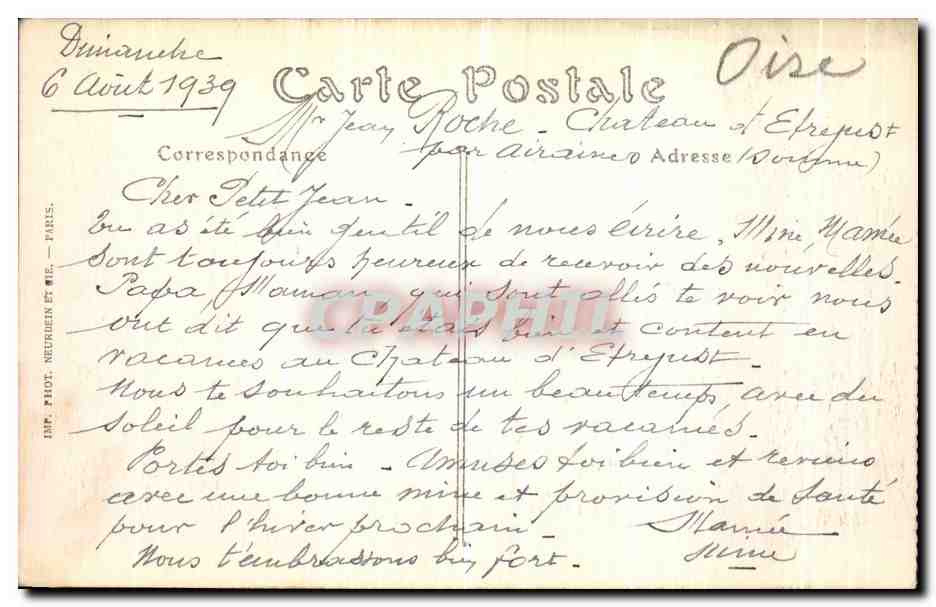 Dimanche
6 Août 1939
Oise
Carte Postale
Mr Jean Roche - Chateau d'Efrepust
par Airaines (Somme)
Correspondance
Adresse
Cher Petit Jean -
Tu as été bien gentil de nous écrire, Mine, Mamée
sont toujours heureux de recevoir des nouvelles.
Papa Maman qui sont allés te voir nous
ont dit que tu étais bien et content en
vacances au Chateau d'Efrepust -
Nous te souhaitons un beau Temps avec du
soleil pour le reste de tes vacances.
Portes toi bien - Amuses toi bien et reviens
avec une bonne mine et provision de Santé
pour l'hiver prochain -
Mamée
Mine
Nous t'embrassons bien fort -
IMP. PHOT. NEURDEIN ET CIE. — PARIS.
CPAPHIL